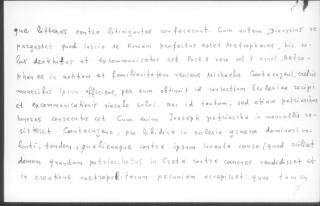 que litteras contra litigantes confecerant. Cum autem Dionysius se
purgasset quod inscio se Romam profectus esset Metrophanes, his so
lus destitutus et excommunicatus est Post 2 vero vel 3 annos, Metro-
phanes in notitiam et familiaritatem veniens Michaelis Cantacuzeni,
ipsum efficiens, per eum obtinuit id consortium Ecclesiae recipi
et excommunicationis vinculo solvi. Nec id tantum, sed etiam patriarchatus
honores consecutus est Cum enim Joasaph patriarcha in nonnullis re-
sisteret Cantacuzeno, pro libidine in ecclesia graeca dominari vo-
lenti, tandem, qualicunque contra ipsum inventa causa (quod scilicet
domum quandam patriarchatus in Creta contra canones vendidisset et
in creatione metropolitarum pecuniam accepisset quae tamen